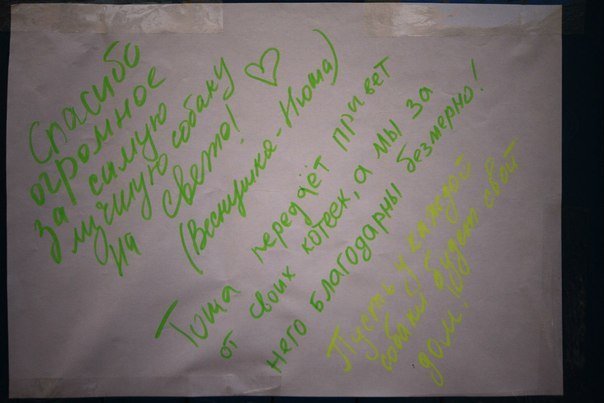 Спасибо
огромное
за самую
лучшую собаку
на свете! ♡
(Веснушка-Нюта)
Тоша передаёт привет
от своих котеек, а мы за
него благодарны безмерно!
Пусть у каждой
собаки будет свой
дом!